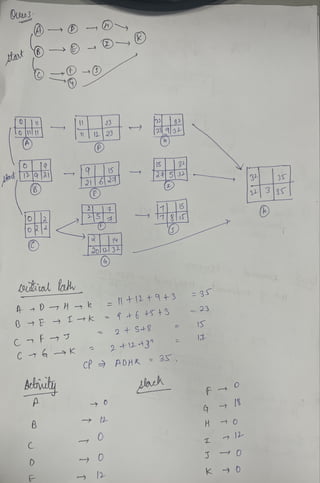 Ques:
A → D → H
start B → E → I K
C → F → J
G
0 11 11 23 23 32
0 11 11 11 12 23 23 9 32
A D H
start 0 9 9 15 15 32 35
12 9 21 21 6 27 27 5 32 32 3 35
B E I K
0 2 2 7 7 15
0 2 2 2 5 7 7 8 15
C F J
2 14
20 12 32
G
Critical Path
A → D → H → K = 11 + 12 + 9 + 3 = 35
B → E → I → K = 9 + 6 + 5 + 3 = 23
C → F → J = 2 + 5 + 8 = 15
C → G → K = 2 + 12 + 3 = 17
CP ⇒ ADHK = 35.
Activity Slack
A → 0
B → 12
C → 0
D → 0
E → 12
F → 0
G → 18
H → 0
I → 12
J → 0
K → 0